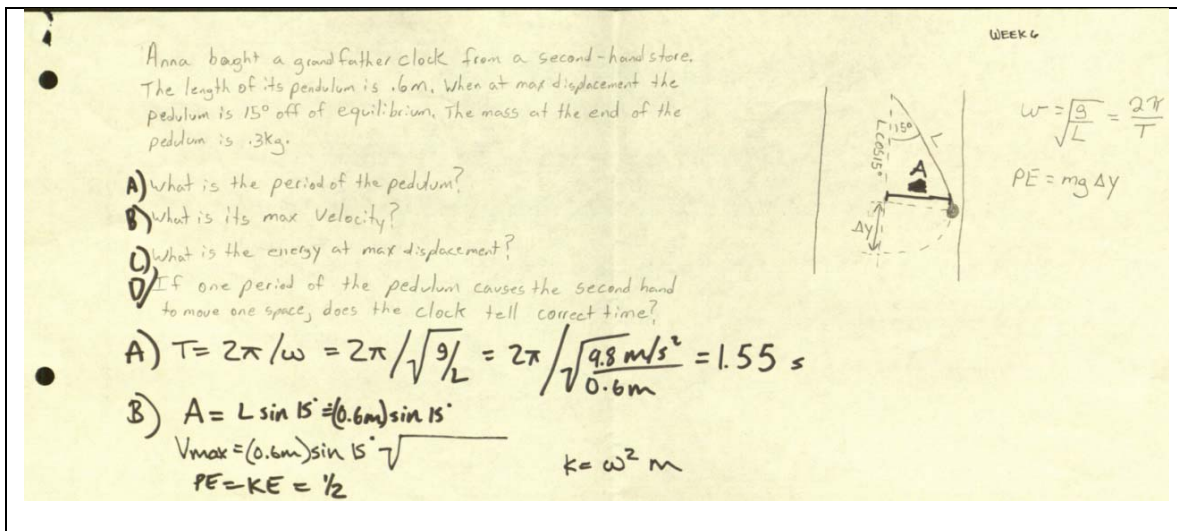 WEEK 6
Anna boght a grandfather clock from a second-hand store.
The length of its pendulum is .6m. When at max displacement the
pedulum is 15° off of equilibrium. The mass at the end of the
pedulum is .3kg.
A) What is the period of the pedulum?
B) What is its max velocity?
C) What is the energy at max displacement?
D) If one period of the pedulum causes the second hand
to move one space, does the clock tell correct time?
15°
L
Lcos15°
A
Δy
ω = √g/L = 2π/T
PE = mg Δy
A) T = 2π/ω = 2π/√g/L = 2π/√9.8 m/s²/0.6m = 1.55 s
B) A = L sin 15° = (0.6m) sin 15°
Vmax = (0.6m) sin 15° √
PE = KE = ½
k = ω² m